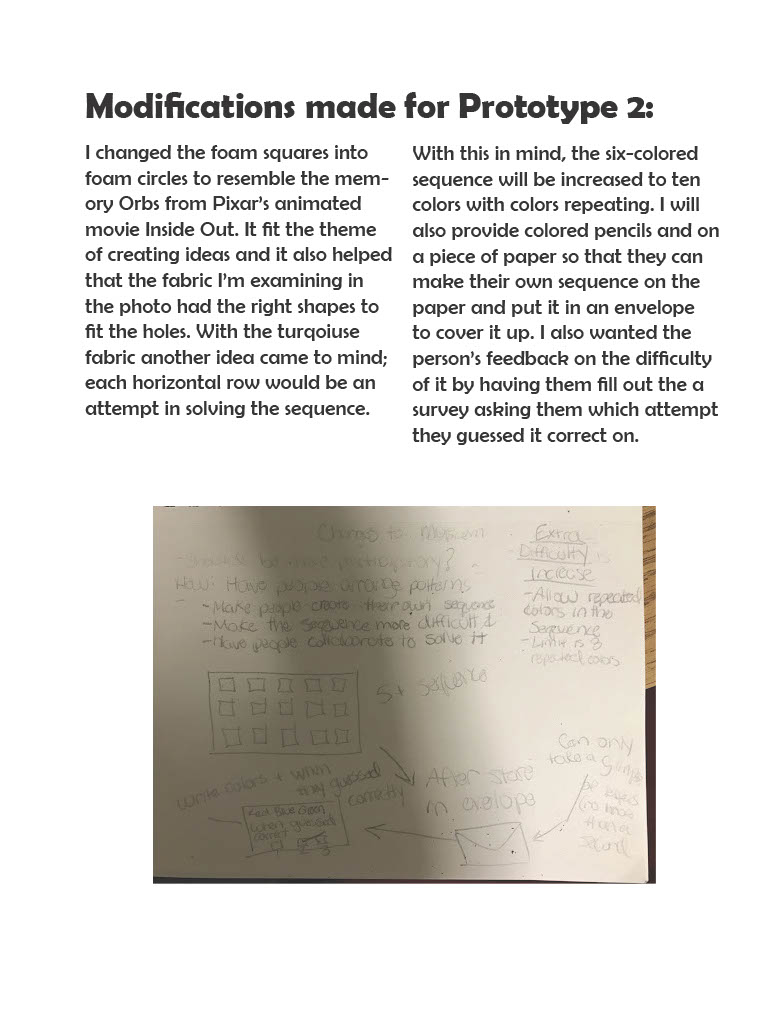 Modifications made for Prototype 2:
I changed the foam squares into
foam circles to resemble the mem-
ory Orbs from Pixar's animated
movie Inside Out. It fit the theme
of creating ideas and it also helped
that the fabric I'm examining in
the photo had the right shapes to
fit the holes. With the turqoiuse
fabric another idea came to mind;
each horizontal row would be an
attempt in solving the sequence.
With this in mind, the six-colored
sequence will be increased to ten
colors with colors repeating. I will
also provide colored pencils and on
a piece of paper so that they can
make their own sequence on the
paper and put it in an envelope
to cover it up. I also wanted the
person's feedback on the difficulty
of it by having them fill out the a
survey asking them which attempt
they guessed it correct on.
Changes to
- Should be more participatory?
How: Have people arrange patterns
- Make people create their own sequence
- Make the sequence more difficult
- Have people collaborate to solve it
Extra
Difficulty is
Increase
- Allow repeated
colors in the
Sequence
- Limit is 3
repeated colors
sequence
Write colors + when
they guessed
correctly
After store
in
Can only
take a
be
no more
than a
second
Red Blue Green
When guessed
correct